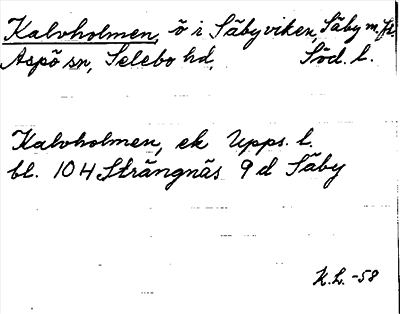 Kalvholmen, ö i Säbyviken, Säby m. fl.
Aspö sn, Selebo hd, Söd. l.
Kalvholmen, ek Upps. l.
bl. 104 Strängnäs 9d Säby
K.L. -58